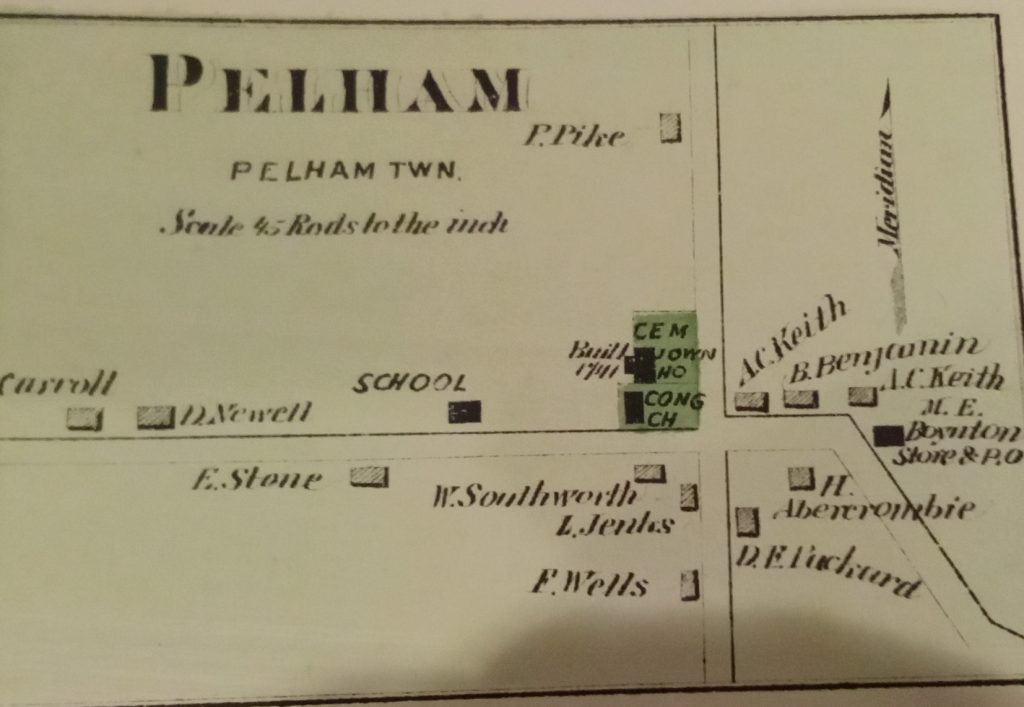 PELHAM
PELHAM TWN.
Scale 45 Rods to the inch
P. Pike
Meridian
CEM
Built
1741
TOWN
HO
CONG
CH
SCHOOL
Carroll
D. Newell
A.C. Keith
B. Benjamin
A.C. Keith
M. E.
Boynton
Store & P.O
E. Stone
W. Southworth
L. Jenks
F. Wells
H.
Abercrombie
D. F. Packard